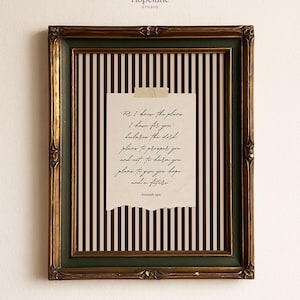 Hopelane
STUDIO
For I know the plans
I have for you
declares the Lord
plans to prosper you
and not to harm you
plans to give you hope
and a future